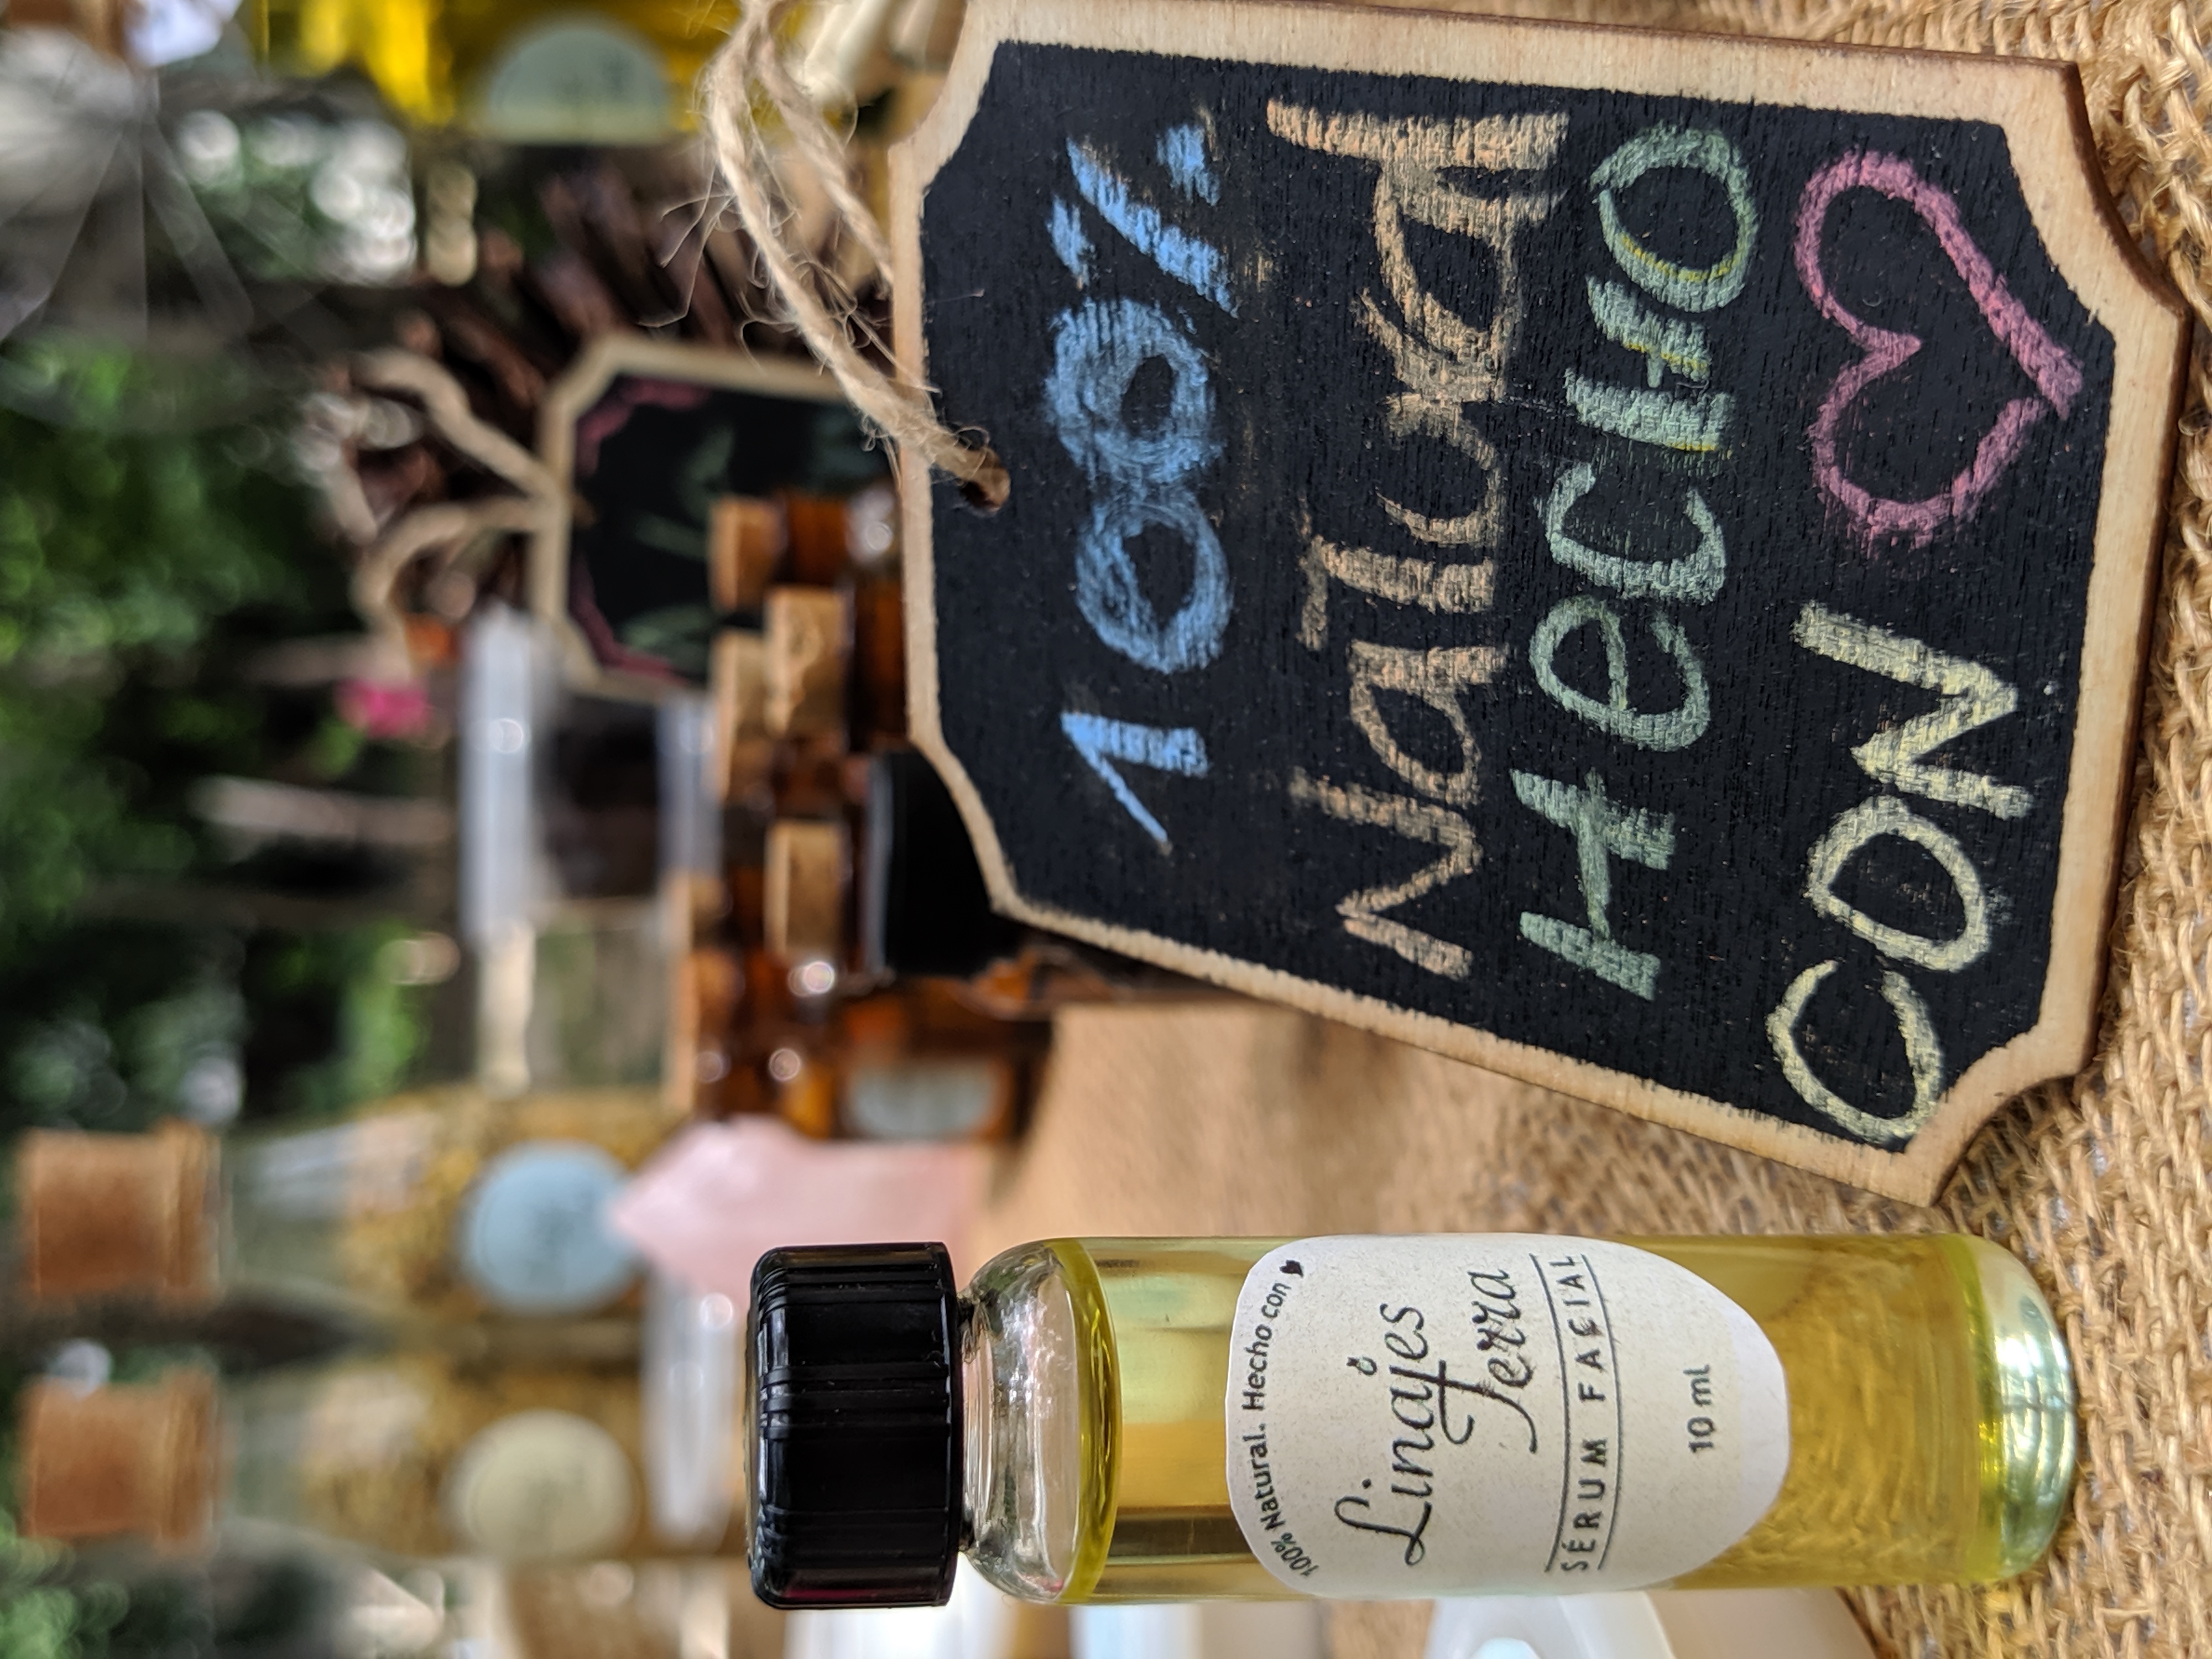 100% Natural. Hecho con ♥
Linajes
Terra
SÉRUM FACIAL
10 ml
100%
Natural
Hecho
CON ♥